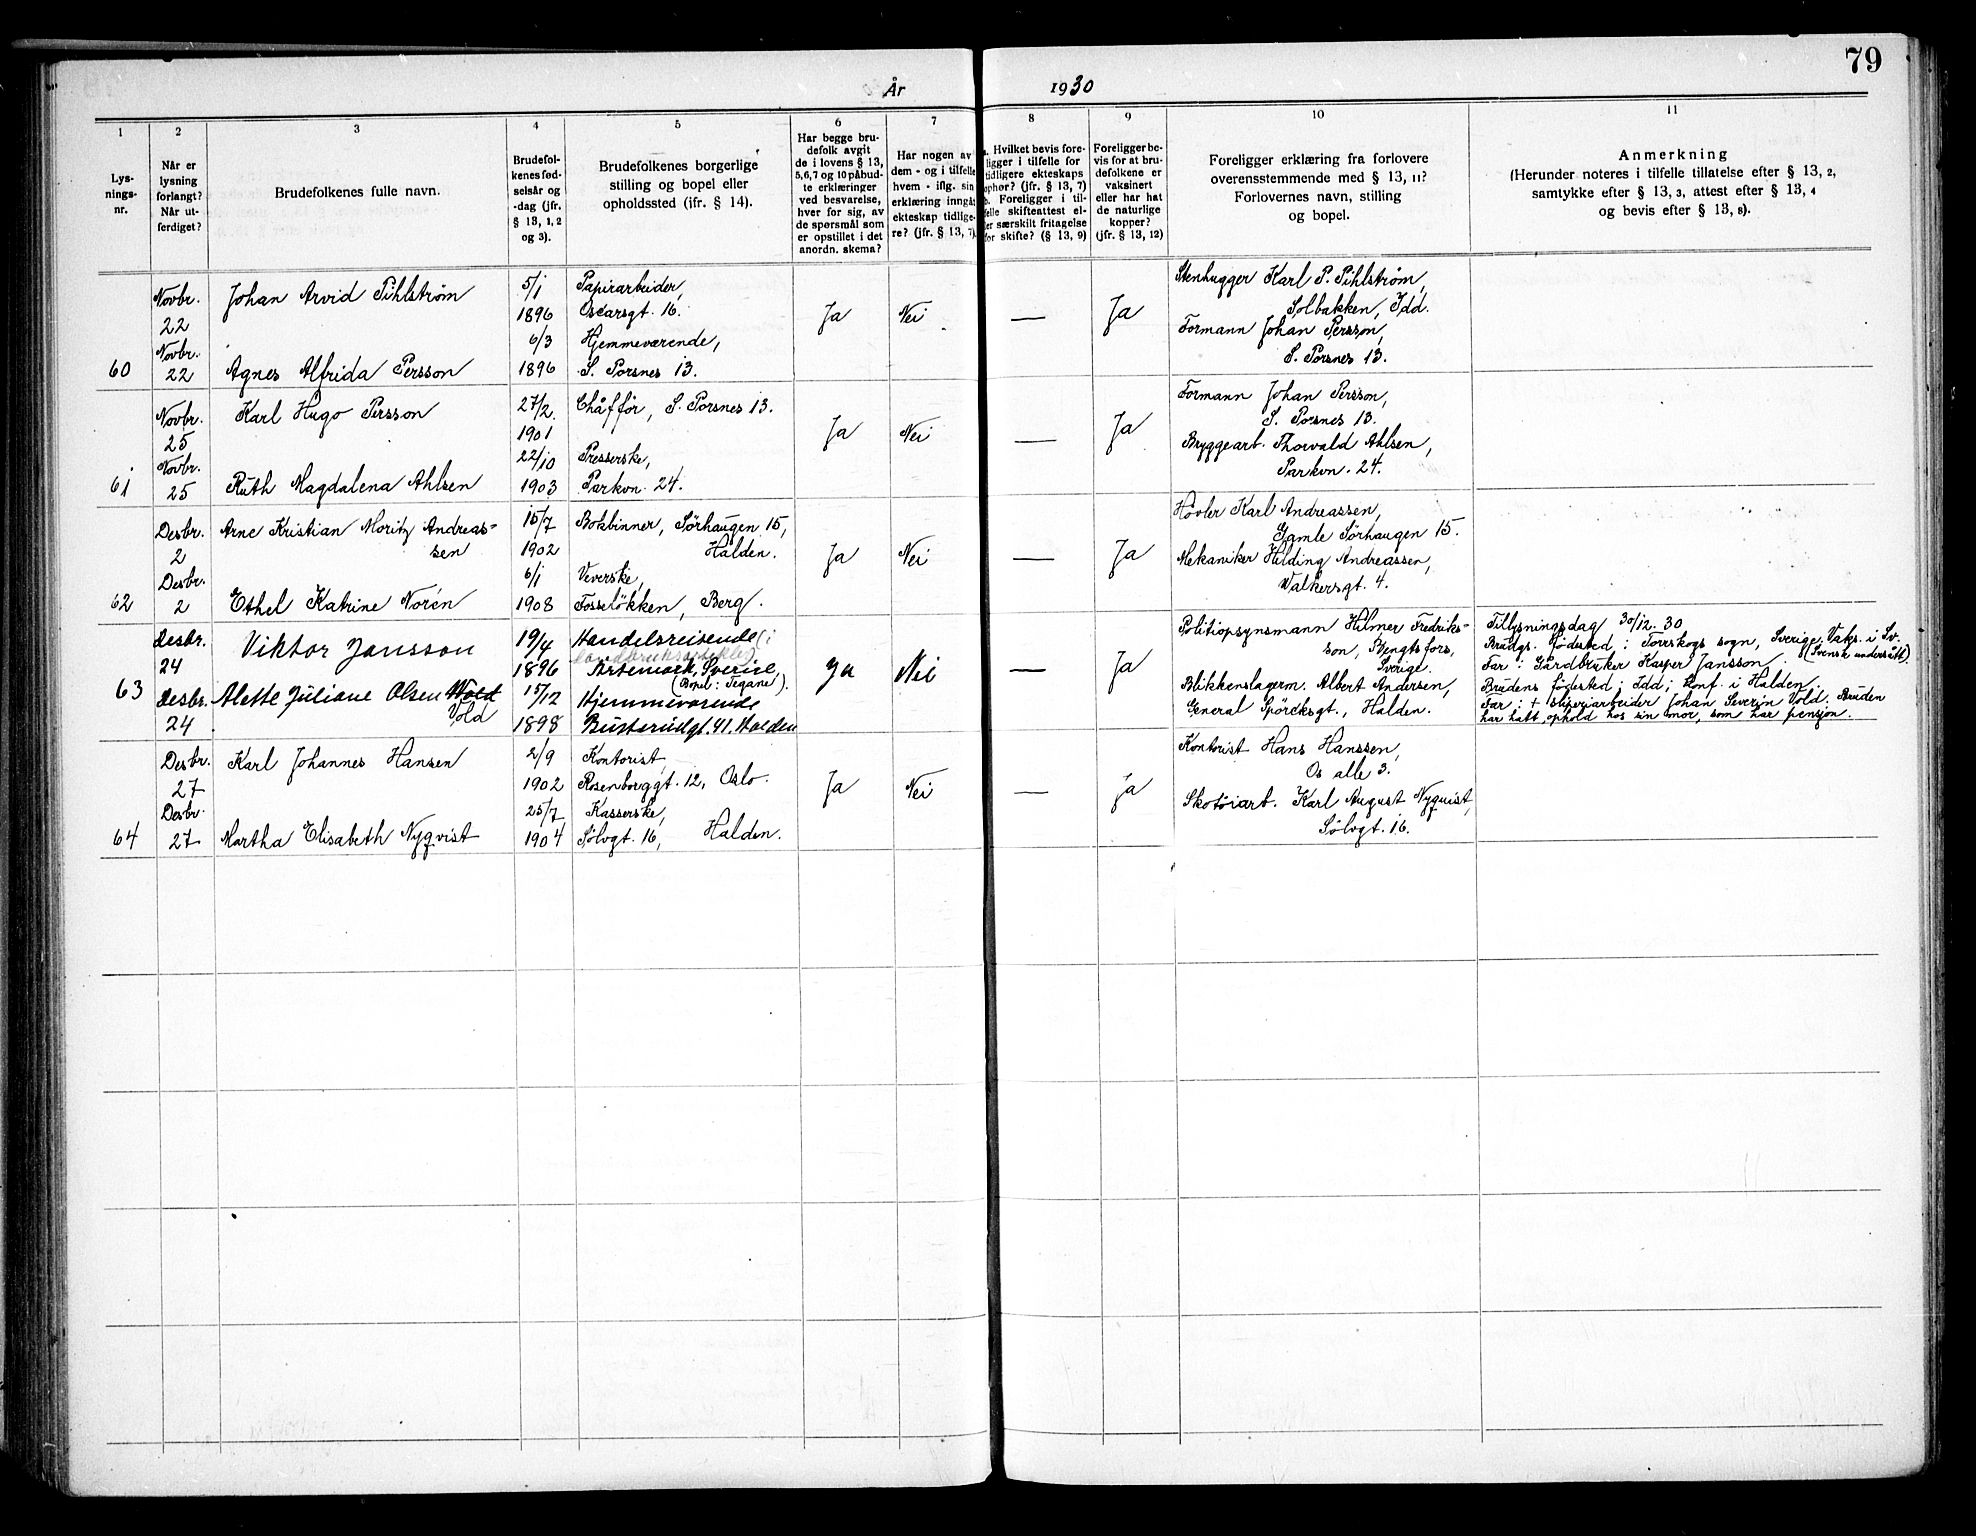 79
År 1930
1
2
3
4
5
6
7
8
9
10
11
Lys-
nings-
nr.
Når er
lysning
forlangt?
Når ut-
ferdiget?
Brudefolkenes fulle navn.
Brudefol-
kenes fød-
selsår og
-dag (jfr.
§ 13, 1, 2
og 3).
Brudefolkenes borgerlige
stilling og bopel eller
opholdssted (ifr. § 14).
Har begge bru-
defolk avgit
de i lovens § 13,
5,6,7 og 10 påbud-
te erklæringer
ved besvarelse,
hver for sig, av
de spørsmål som
er opstillet i det
anordn. skema?
Har nogen av
dem - og i tilfelle
hvem - iflg. sin
erklæring inngåt
ekteskap tidlige-
re? (jfr. § 13, 7).
a. Hvilket bevis fore-
ligger i tilfelle for
tidligere ekteskaps
ophør? (jfr. § 13, 7)
b. Foreligger i til-
felle skifteattest el-
ler særskilt fritagelse
for skifte? (§ 13, 9)
Foreligger be-
vis for at bru-
defolkene er
vaksinert
eller har hat
de naturlige
kopper?
(jfr. § 13, 12)
Foreligger erklæring fra forlovere
overensstemmende med § 13, 11?
Forlovernes navn, stilling
og bopel.
Anmerkning
(Herunder noteres i tilfelle tillatelse efter § 13, 2,
samtykke efter § 13, 3, attest efter § 13, 4
og bevis efter § 13, 8).
60
Novbr.
22
Novbr.
22
Johan Arvid Pihlström
Agnes Alfrida Persson
5/1
1896
6/3
1896
Papirarbeider,
Oscarsgt. 16.
Hjemmeværende,
S. Porsnes 13.
Ja
Nei
—
Ja
Stenhugger Karl P. Pihlström,
Solbakken, Idd.
Formann Johan Persson,
S. Porsnes 13.
61
Novbr.
25
Novbr.
25
Karl Hugo Persson
Ruth Magdalena Ahlsen
27/2
1901
22/10
1903
Chåffør, S. Porsnes 13.
Presserske,
Parkvn. 24.
Ja
Nei
—
Ja
Formann Johan Persson,
S. Porsnes 13.
Bryggearb. Thorvald Ahlsen,
Parkvn. 24.
62
Desbr.
2
Desbr.
2
Arne Kristian Moritz Andreas-
sen
Ethel Katrine Norén
15/7
1902
6/1
1908
Bokbinner, Sörhaugen 15,
Halden.
Veverske,
Fosseløkken, Berg.
Ja
Nei
—
Ja
Høvler Karl Andreassen,
Gamle Sörhaugen 15.
Mekaniker Hilding Andreassen,
Walkersgt. 4.
63
Desbr.
24
Desbr.
24
Viktor Jansson
Alette Juliane Olsen Wold
Vold
19/4
1896
15/12
1898
Handelsreisende (i
landbruksartikler)
Artemark, Sverige,
(Bopel: Tegane).
Hjemmeværende
Busterudgt. 41. Halden
Ja
Nei
—
Ja
Politiopsynsmann Hilmer Fredriks-
son, Bengtsfors,
Sverige.
Blikkenslagerm. Albert Andersen,
General Spörcksgt., Halden.
Tillysningsdag 30/12. 30
Brudgs. födested: Torrskogs sogn, Sverige. Vaks. i Sv.
(Svensk undersått).
Far: Gårdbruker Kasper Jansson.
Brudens födested: Idd; konf. i Halden.
Far: † sliperiarbeider Johan Severin Vold. Bruden
har hatt ophold hos sin mor, som har pensjon.
64
Desbr.
27
Desbr.
27
Karl Johannes Hansen
Martha Elisabeth Nyqvist
2/9
1902
25/7
1904
Kontorist,
Rosenborggt. 12, Oslo.
Kasserske,
Sølvgt. 16, Halden.
Ja
Nei
—
Ja
Kontorist Hans Hanssen,
Os alle 3.
Skotøiarb. Karl August Nyquist,
Sölvgt. 16.